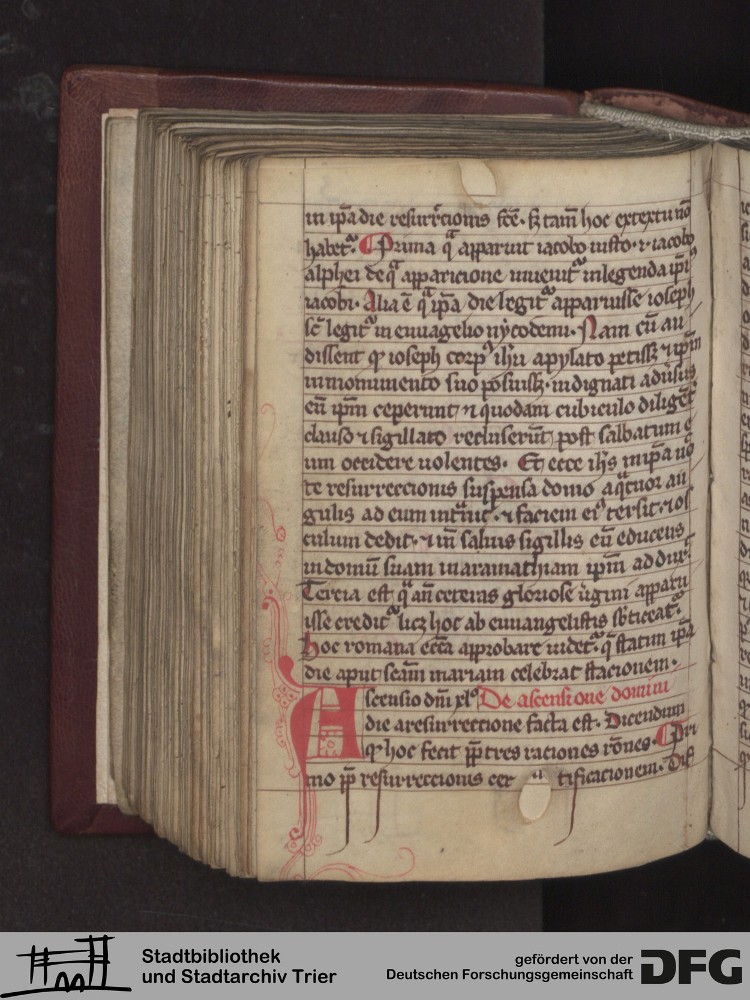 in ip̄a die resurrc̄ionis fcē. sꝫ tam̄ hoc ex textu nō
habetᷣ. Prima qᷓ apparuit iacobo iusto. ⁊ iacobo
alphei de qᷓ apparicione inueniētᷣ in legenda ip̄iᷤ
iacobi. Alia ē qᷓ ip̄a die legitᷣ apparuisse ioseph
sc̄ legitᷣ in euuagelio nycodemi. Nam cū au
dissent qꝫ ioseph corpꝰ ihū apylato petissꝫ ⁊ ip̄m
in monumento suo posuissꝫ. indignati adūsus
eū ip̄m ceperunt ⁊ quodam cubiculo diligētᷣ
clauso ⁊ sigillato recluserūt post sabbatum e
um occidere uolentes. Et ecce ih̄s in ip̄a no
te resurreccionis suspensa domo a qᷓtuor an
gulis ad eum intᷓuit. ⁊ faciem eiꝰ tersit. ⁊ os
culum dedit. ⁊ in saluis sigillis eū educens
in domū suam in aramathiam ip̄m addux̄.
Tercia est qᷓ an̄ ceteras gloriose ūgini apparu
isse creditᷣ licꝫ hoc ab euuangelistis sb̄ticeatᷣ.
hoc romana ecc̄a approbare uidetᷣ. qᷓ statim ip̄a
die aput scām mariam celebrat stacionem.
Ascensio dn̄i xlᵒ De ascensione domini
die a resurreccione facta est. Dicendum
qꝫ hoc fecit ꝓp̄ tres raciones rōnes. Pri
mo ꝓp̄ resurreccionis cer tificacionem. Dis
Stadtbibliothek
und Stadtarchiv Trier
gefördert von der
Deutschen Forschungsgemeinschaft
DFG